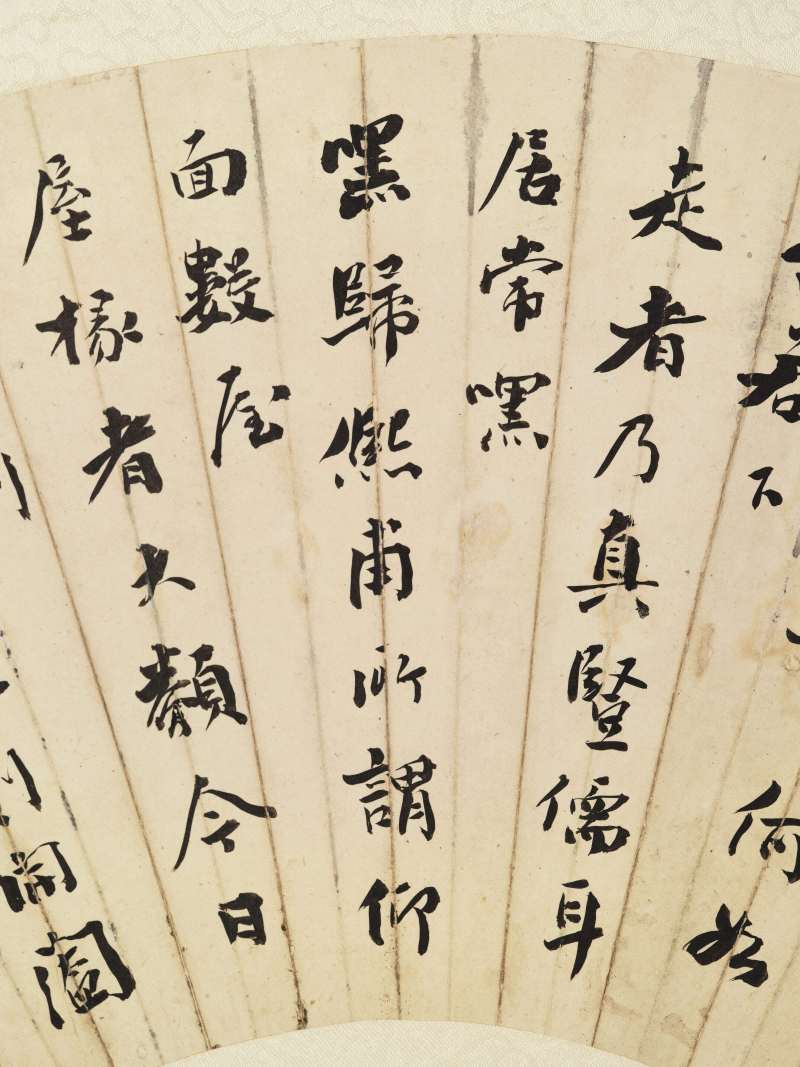 君不何如
走者乃真豎儒耳
居常嘿
嘿歸熙甫所謂仰
面數屋
屋椽者大類今日
閑園